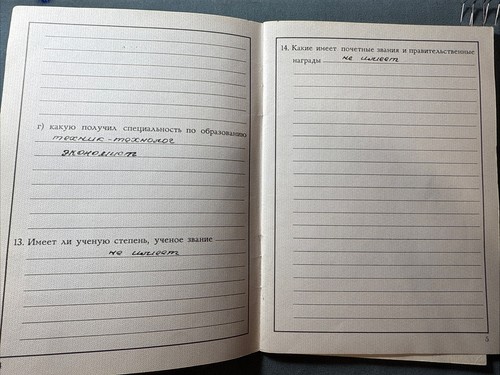 г) какую получил специальность по образованию
техник-технолог
экономист
13. Имеет ли ученую степень, ученое звание
не имеет
14. Какие имеет почетные звания и правительственные
награды не имеет
5